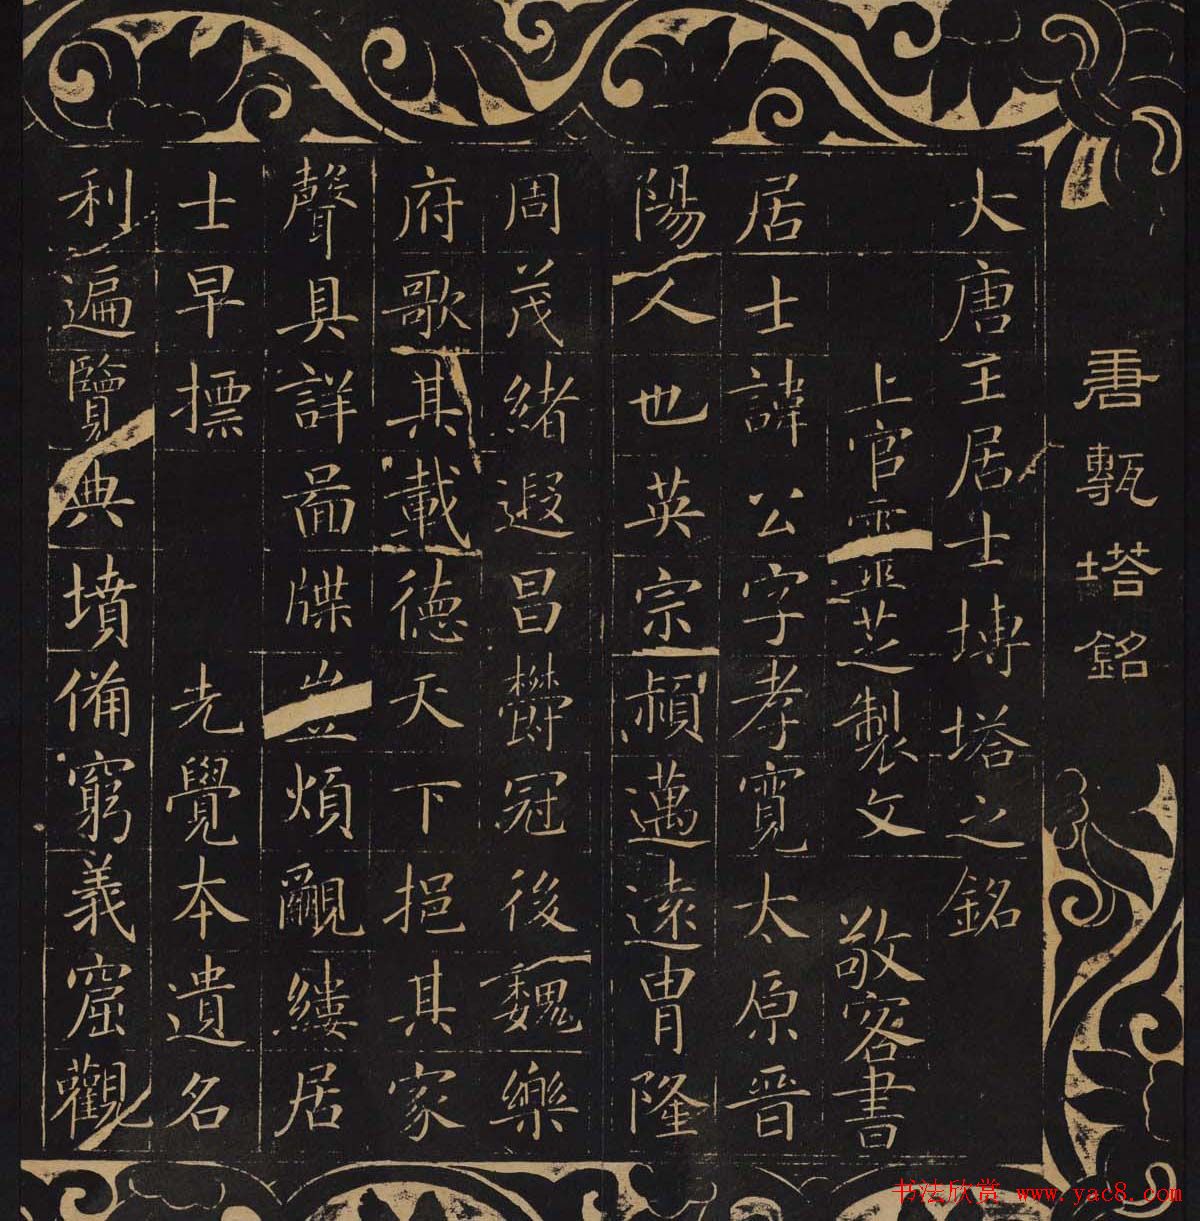 唐甎塔銘
大唐王居士塼塔之銘
上官靈芝製文 敬客書
居士諱公字孝寬太原晉
陽人也英宗頴邁遠冑隆
周茂緒遐昌欝冠後魏樂
府歌其載德天下挹其家
聲具詳啚牒豈煩覼縷居
士早摽 先覺本遺名
利遍覽典墳備窮義窟觀
书法欣赏 www.yac8.com